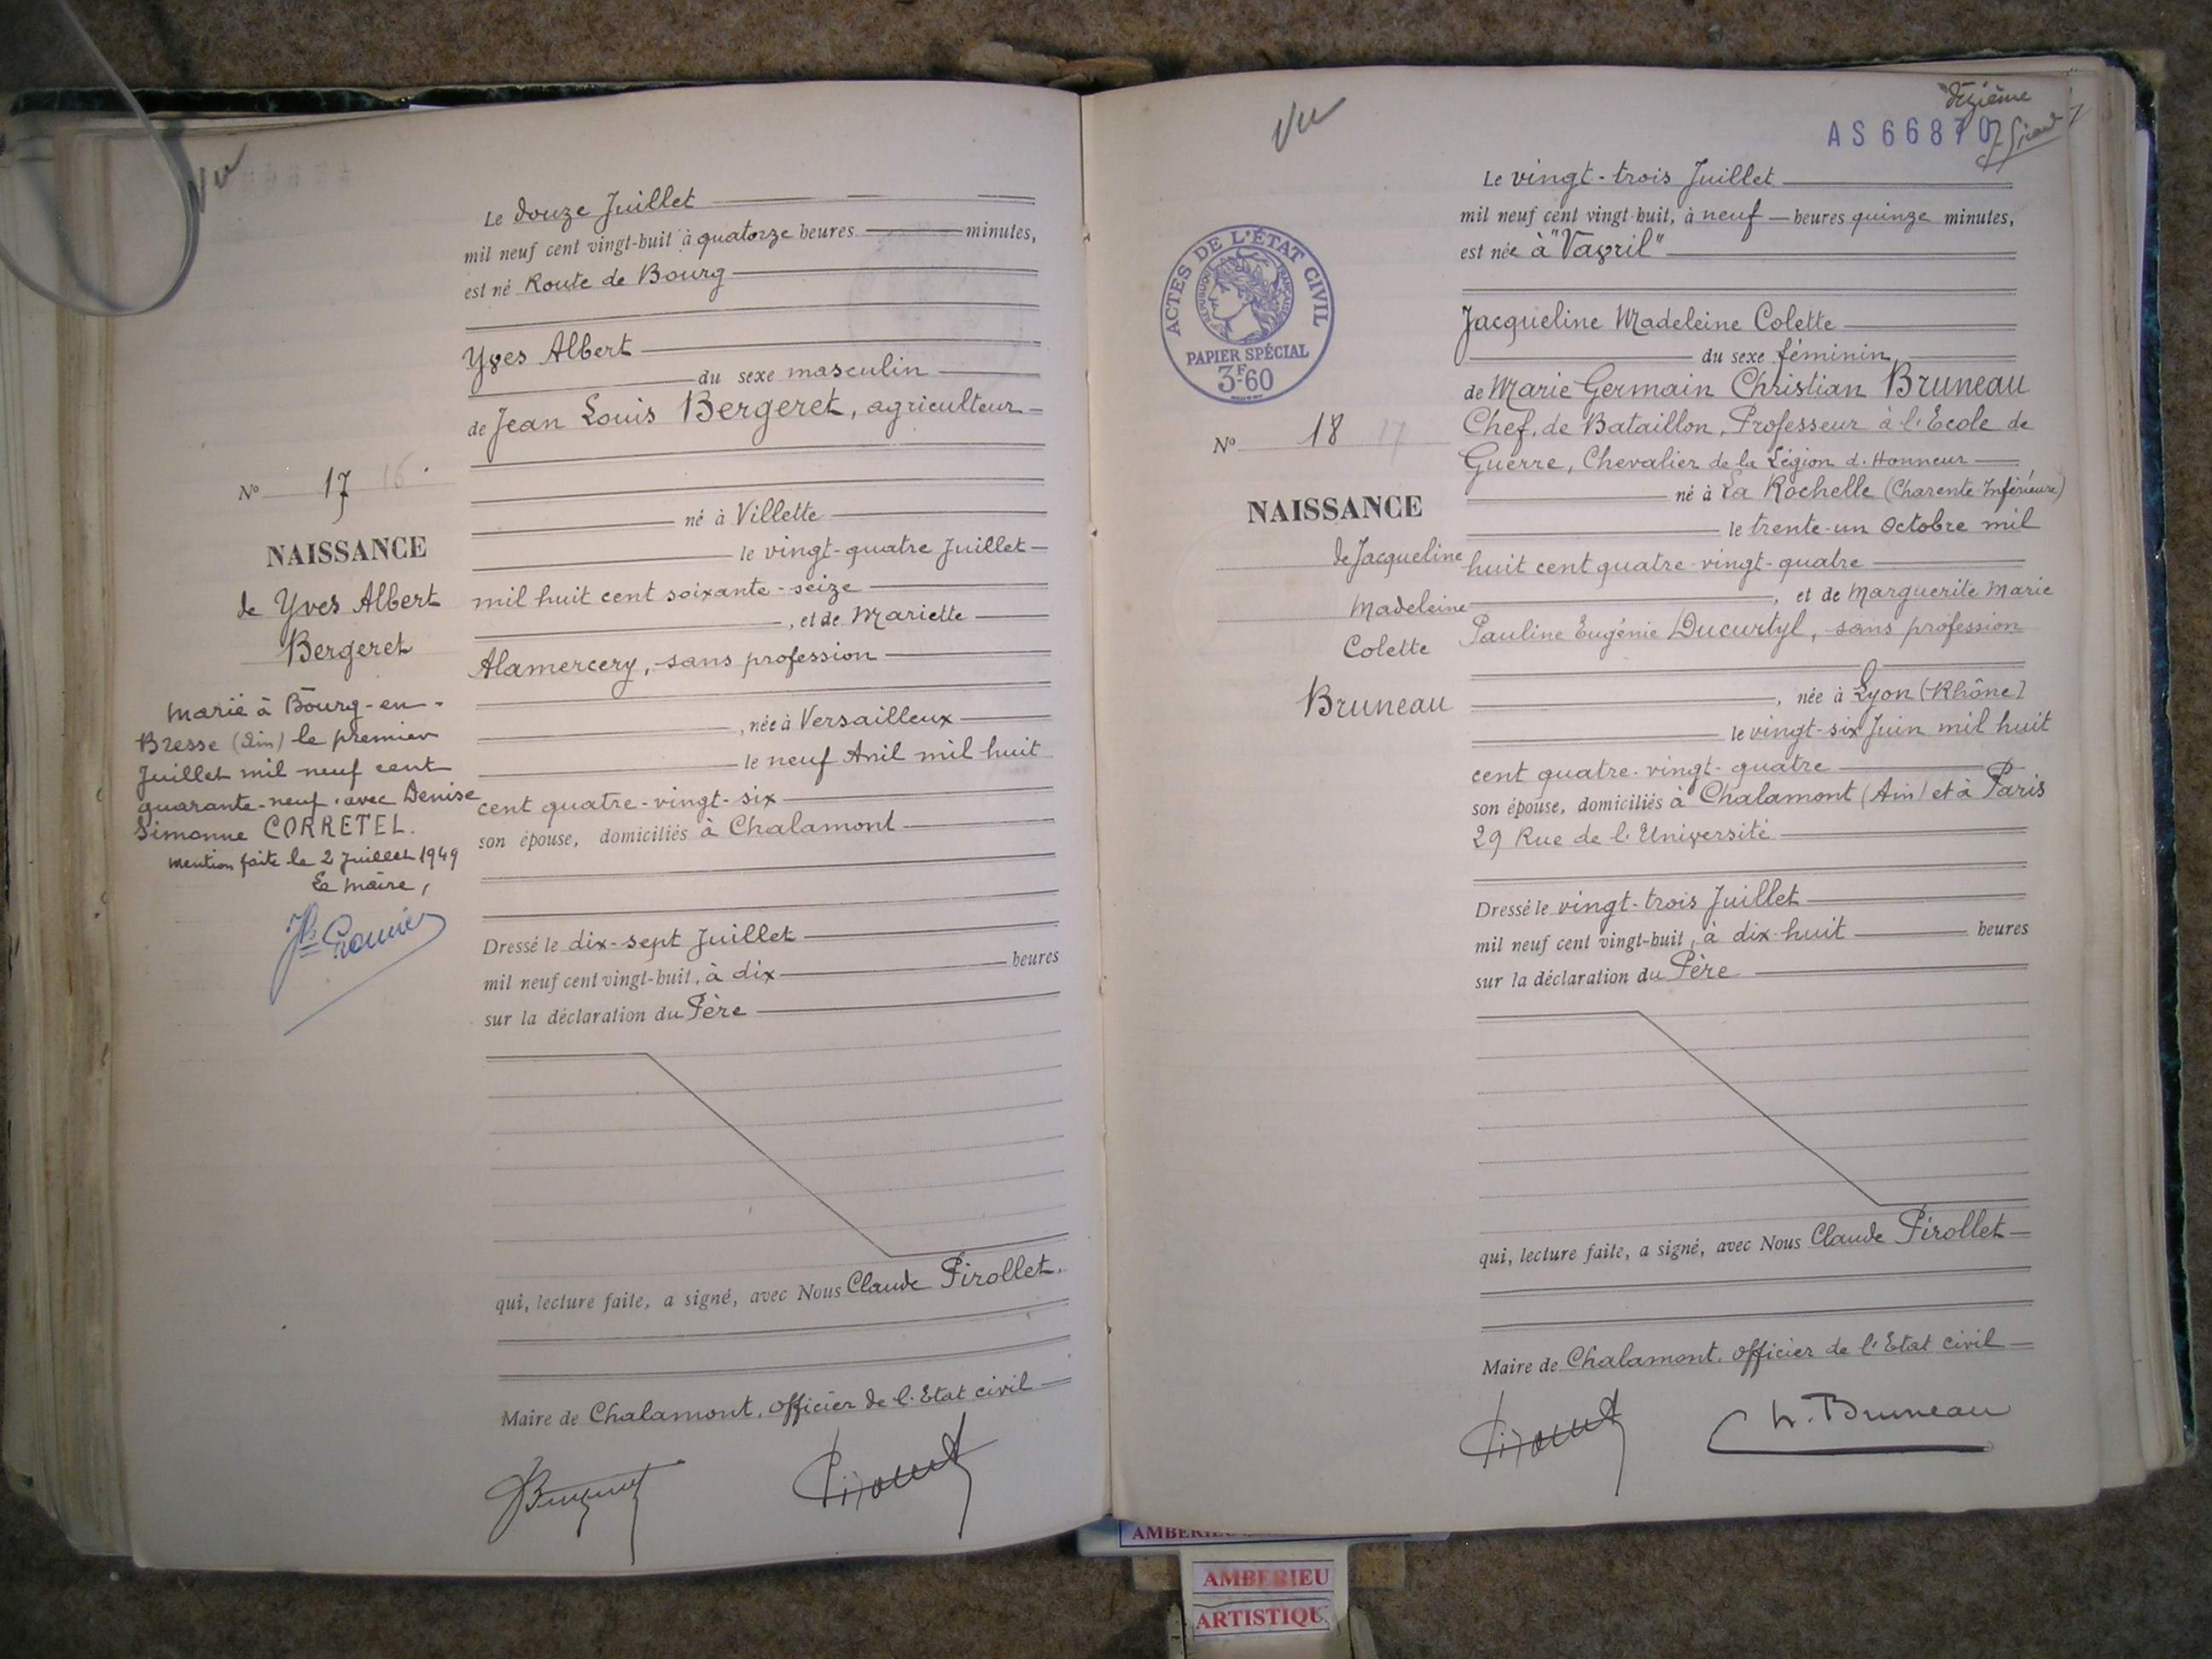 Vu
Le douze Juillet
mil neuf cent vingt-huit à quatorze heures minutes,
est né Route de Bourg
Yves Albert
du sexe masculin
de Jean Louis Bergeret, agriculteur
né à Villette
le vingt-quatre Juillet
mil huit cent soixante-seize
, et de Mariette
Alamercery, sans profession
, née à Versailleux
le neuf Avril mil huit
cent quatre-vingt-six
son épouse, domiciliés à Chalamont
Dressé le dix-sept Juillet
mil neuf cent vingt-huit, à dix heures
sur la déclaration du Père
qui, lecture faite, a signé, avec Nous Claude Pirollet.
Maire de Chalamont, officier de l'Etat civil
N° 17 16
NAISSANCE
de Yves Albert
Bergeret
Marié à Bourg-en-
Bresse (Ain) le premier
Juillet mil neuf cent
quarante-neuf avec Denise
Simonne CORRETEL.
Mention faite le 2 Juillet 1949
Le Maire,
Vu
dizième
AS 66870
Le vingt-trois Juillet
mil neuf cent vingt-huit, à neuf heures quinze minutes,
est née à "Vavril"
Jacqueline Madeleine Colette
du sexe féminin
de Marie Germain Christian Bruneau
Chef de Bataillon, Professeur à l'Ecole de
Guerre, Chevalier de la Légion d'Honneur
né à La Rochelle (Charente-Inférieure)
le trente-un Octobre mil
huit cent quatre-vingt-quatre
, et de Marguerite Marie
Pauline Eugénie Ducurtyl, sans profession
, née à Lyon (Rhône)
le vingt-six Juin mil huit
cent quatre-vingt-quatre
son épouse, domiciliés à Chalamont (Ain) et à Paris
29 Rue de l'Université
Dressé le vingt-trois Juillet
mil neuf cent vingt-huit, à dix-huit heures
sur la déclaration du Père
qui, lecture faite, a signé, avec Nous Claude Pirollet
Maire de Chalamont, officier de l'Etat civil
Bruneau
ACTES DE L'ÉTAT CIVIL
RÉPUBLIQUE FRANÇAISE
PAPIER SPÉCIAL
3F-60
N° 18 17
NAISSANCE
de Jacqueline
Madeleine
Colette
Bruneau
AMBERIEU
ARTISTIQU